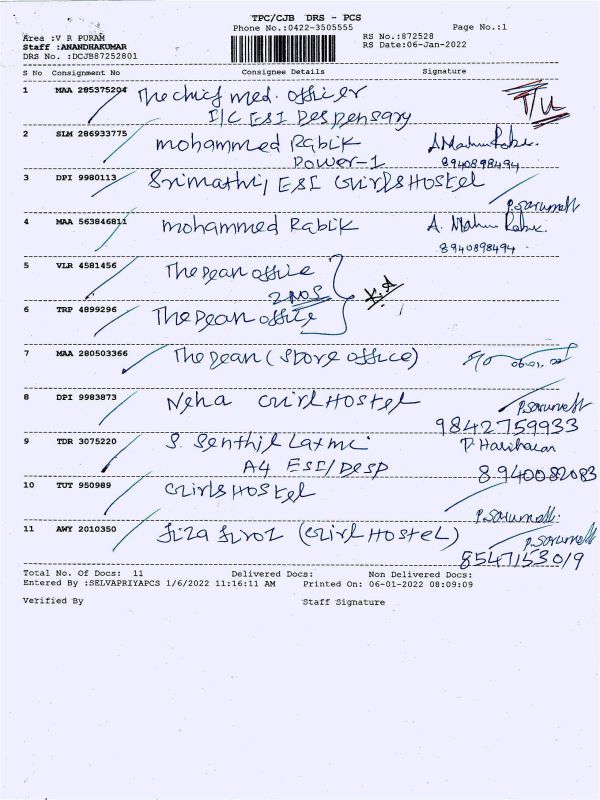 TPC/CJB DRS - PCS
Phone No.:0422-3505555
Page No.:1
Area :V R PURAM
RS No.:872528
Staff :ANANDHAKUMAR
RS Date:06-Jan-2022
DRS No. :DCJB87252801
S No Consignment No Consignee Details Signature
1 MAA 285375204 The chief med. officer T/U
I/C ESI Despensary
2 SLM 286933775 mohammed Rabik
Power-1 8940898494
3 DPI 9980113 Srimathi, ESI Girls Hostel
4 MAA 563846811 mohammed Rabik
8940898494
5 VLR 4581456 The Dean office
2 NOS
6 TRP 4899296 The Dean office
7 MAA 280503366 The Dean (Store office)
8 DPI 9983873 Neha Girl Hostel
9842759933
9 TDR 3075220 S. Senthil Laxmi P. Hariharan
A4 ESI/Desp 8940082083
10 TUT 950989 Girls Hostel
11 AWY 2010350 Fiza Firoz (Girl Hostel)
8547153019
Total No. Of Docs: 11 Delivered Docs: Non Delivered Docs:
Entered By :SELVAPRIYAPCS 1/6/2022 11:16:11 AM Printed On: 06-01-2022 08:09:09
Verified By Staff Signature